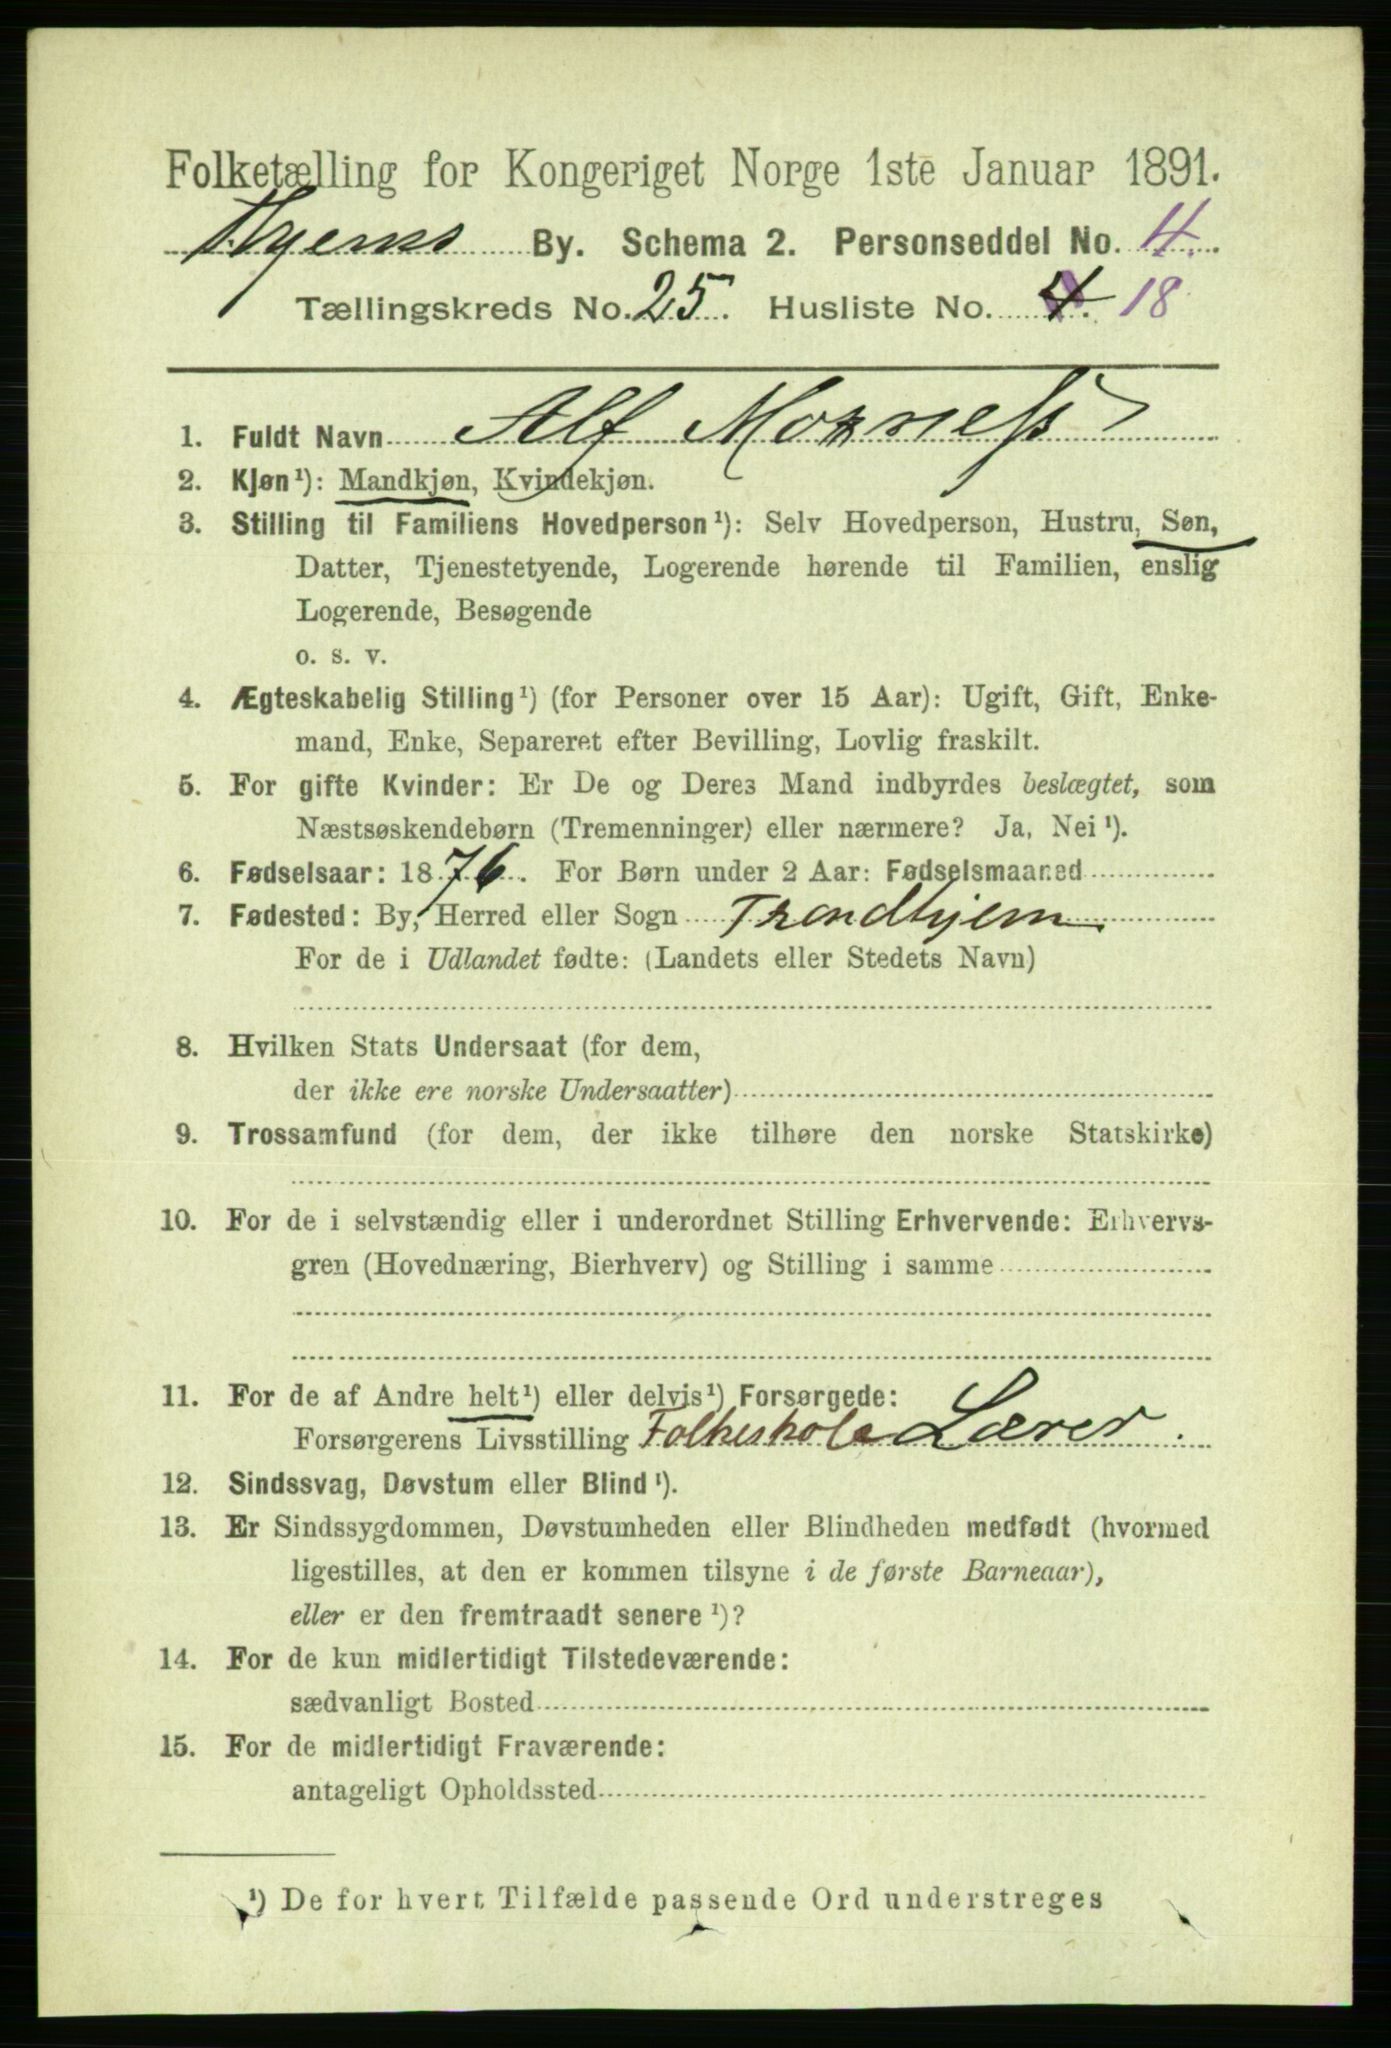 Folketælling for Kongeriget Norge 1ste Januar 1891.
Thjems By. Schema 2. Personseddel No. 4.
Tællingskreds No. 25. Husliste No. 4. 18
1. Fuldt Navn Alf Morness
2. Kjøn¹): Mandkjøn, Kvindekjøn.
3. Stilling til Familiens Hovedperson¹): Selv Hovedperson, Hustru, Søn,
Datter, Tjenestetyende, Logerende hørende til Familien, enslig
Logerende, Besøgende
o. s. v.
4. Ægteskabelig Stilling¹) (for Personer over 15 Aar): Ugift, Gift, Enke-
mand, Enke, Separeret efter Bevilling, Lovlig fraskilt.
5. For gifte Kvinder: Er De og Deres Mand indbyrdes beslægtet, som
Næstsøskendebørn (Tremenninger) eller nærmere? Ja, Nei¹).
6. Fødselsaar: 1876. For Børn under 2 Aar: Fødselsmaaned
7. Fødested: By, Herred eller Sogn Trondhjem
For de i Udlandet fødte: (Landets eller Stedets Navn)
8. Hvilken Stats Undersaat (for dem,
der ikke ere norske Undersaatter)
9. Trossamfund (for dem, der ikke tilhøre den norske Statskirke)
10. For de i selvstændig eller i underordnet Stilling Erhvervende: Erhvervs-
gren (Hovednæring, Bierhverv) og Stilling i samme
11. For de af Andre helt¹) eller delvis¹) Forsørgede:
Forsørgerens Livsstilling Folkeskole Lærer.
12. Sindssvag, Døvstum eller Blind¹).
13. Er Sindssygdommen, Døvstumheden eller Blindheden medfødt (hvormed
ligestilles, at den er kommen tilsyne i de første Barneaar),
eller er den fremtraadt senere¹)?
14. For de kun midlertidigt Tilstedeværende:
sædvanligt Bosted
15. For de midlertidigt Fraværende:
antageligt Opholdssted
¹) De for hvert Tilfælde passende Ord understreges